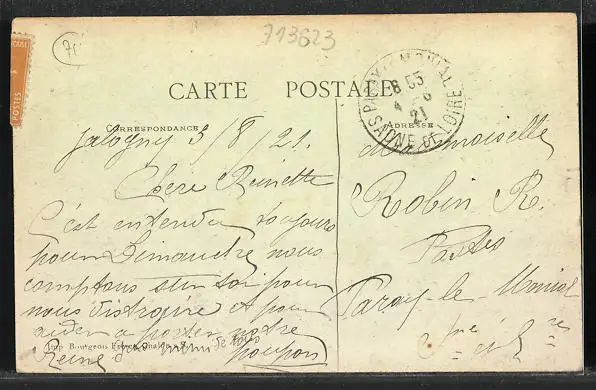 713623
POSTES
CARTE POSTALE
PARAY-LE-MONIAL
8 55
4 - 8
21
SAONE-ET-LOIRE
CORRESPONDANCE
ADRESSE
Jalogny 3/8/21.
Chère Reinette
C'est entendu toujours
pour Dimanche, nous
comptons sur toi pour
nous distraire et pour
aider à porter notre
Imp. Bourgeois Frères, Chalon s/S
Reine
poupon
Mademoiselle
Robin R.
Postes
Paray-le-Monial
Sne et L re